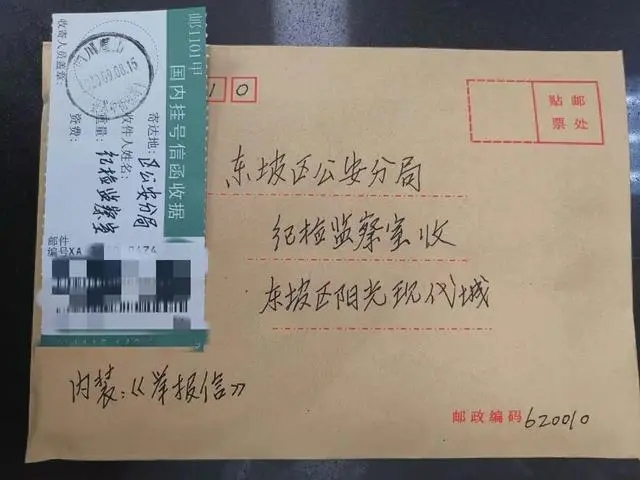 邮1101甲
国内挂号信函收据
收寄人员盖章:
寄达地:区公安分局
收件人姓名:
纪检监察室
重量:
资费:
邮件
编号XA
10
贴邮
票处
东坡区公安分局
纪检监察室收
东坡区阳光现代城
内装:《举报信》
邮政编码620010